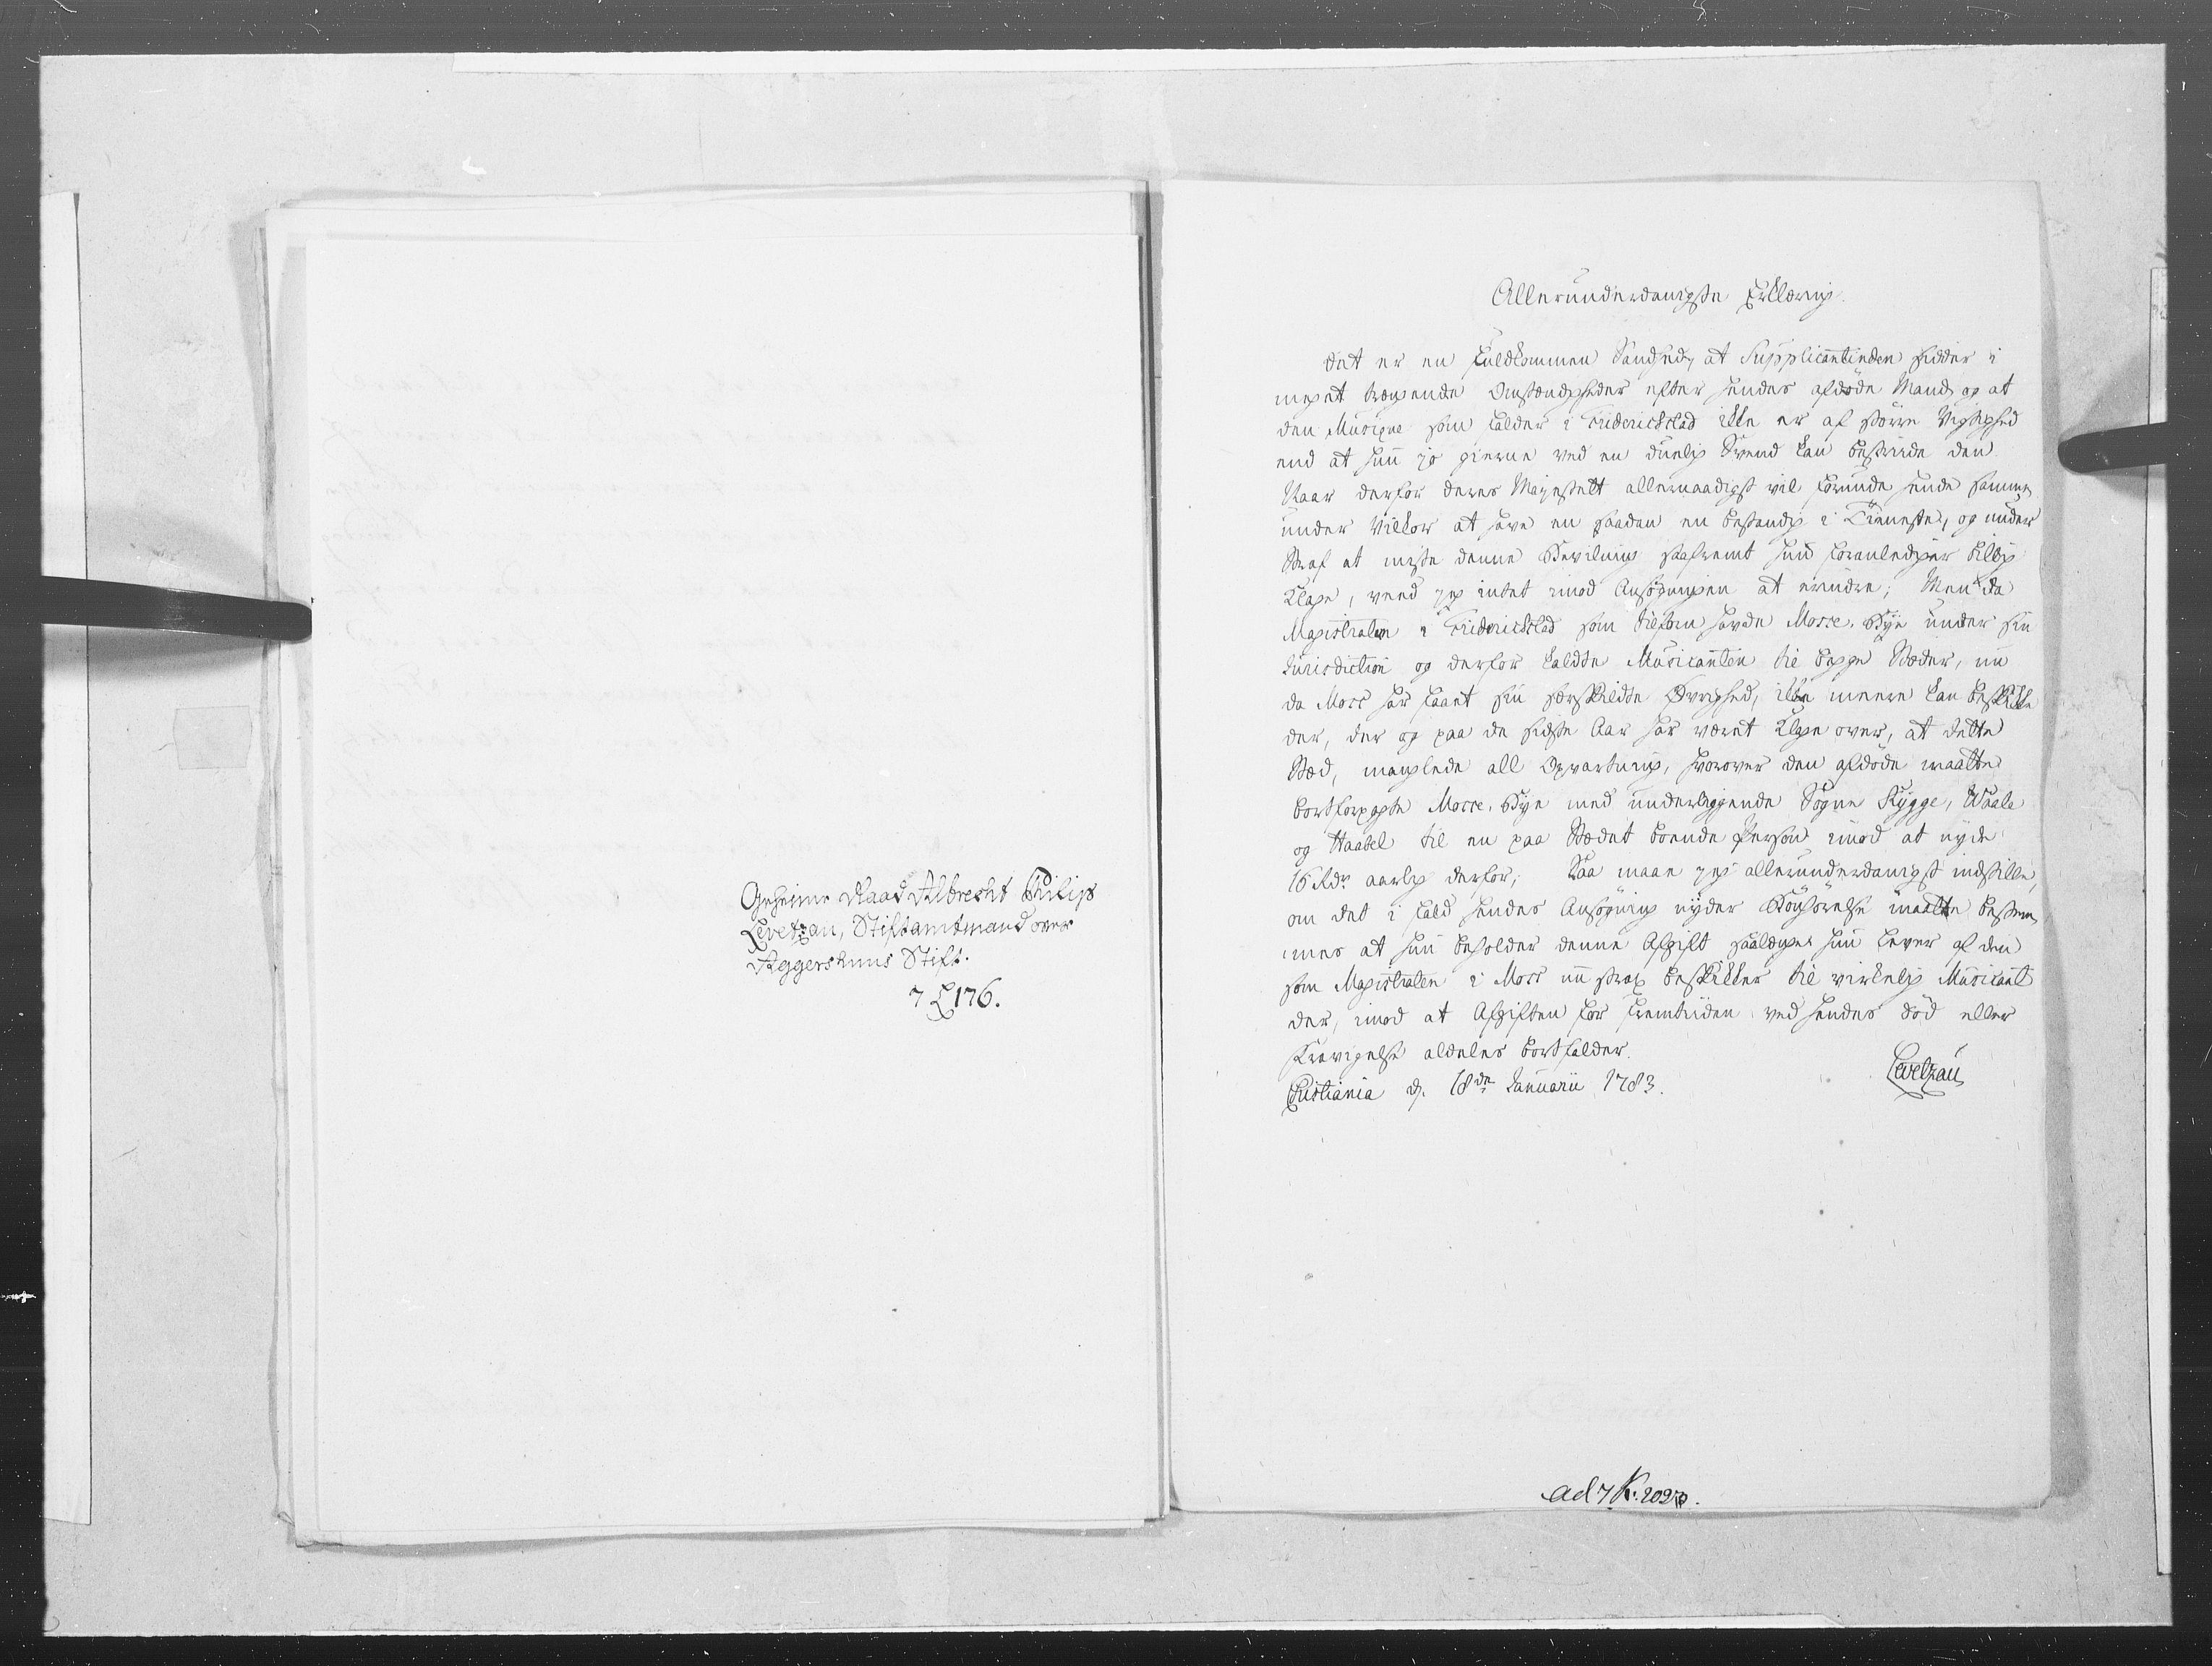 Geheime Raad Albrecht Philip
Levetzau, Stiftamtmand over
Aggershuus Stift.
7 L 176.
Allerunderdanigste Erklæring.
Det er en fuldkommen Sandhed, at Supplicantinden sidder i
meget trængende Omstændigheder efter hendes afdöde Mand og at
den Musique som falder i Friderichstad ikke er af större Vigtighed
end at hun jo gierne ved en duelig Svend kan bestride den.
Naar derfor Deres Mayestætt allernaadigst vil forunde hende samme
under Vilkor at have en saadan en bestandig i Tieneste, og under
Straf at miste denne Bevilning saafremt hun foranlediger billig
Klage, veed jeg intet imod Ansögningen at erindre; Men da
Magistraten i Friderichstad som tilforn havde Mosse-Bye under sin
Jurisdiction og derfor kaldte Musicanten til begge Stæder, nu
da Moss har faaet sin særskildte Øvrighed, ikke meere kan beskikke
der, der og paa de sidste Aar har været Klage over, at dette
Stæd, manglede all Opvartning, hvorover den afdöde maatte
bortforpagte Mosse-Bye med underliggende Sogne Rygge, Waale
og Haabel til en paa Stædet boende Person imod at nyde
16 Rdr aarlig derfor; Saa maae jeg allerunderdanigst indstille,
om det i fald hendes Ansögning nyder Bönhörelse maatte bestem,
mes at hun beholder denne Afgift saalænge hun lever af den
som Magistraten i Moss nu strax beskikker til virkelig Musicant
der, imod at Afgiften for fremtiden ved hendes Död eller
Fravigelse aldeles bortfalder.
Christiania d. 18de Januarii 1783.
Levetzau
ad 7 K: 2027.